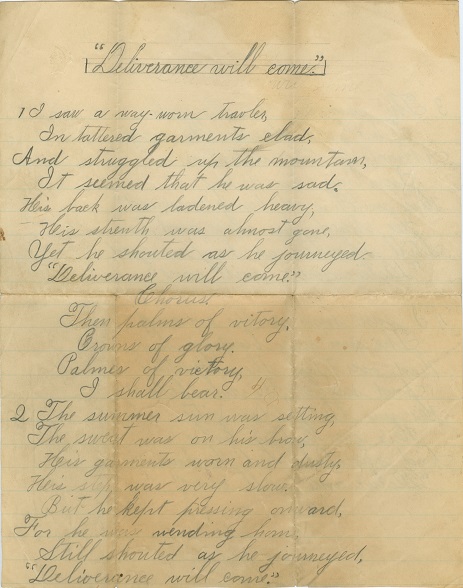 "Deliverance will come."
1 I saw a way-worn travler,
In tattered garments clad,
And struggled up the mountain,
It seemed that he was sad.
His back was ladened heavy,
His strenth was almost gone,
Yet he shouted as he journeyed.
"Deliverance will come."
Chorus.
Then palms of vitory,
Crowns of glory.
Palmes of victory,
I shall bear.
2 The summer sun was setting,
The sweat was on his brow,
His garments worn and dusty,
His step was very slow.
But he kept pressing onward,
For he was wending hom,
Still shouted as he journeyed,
"Deliverance will come."